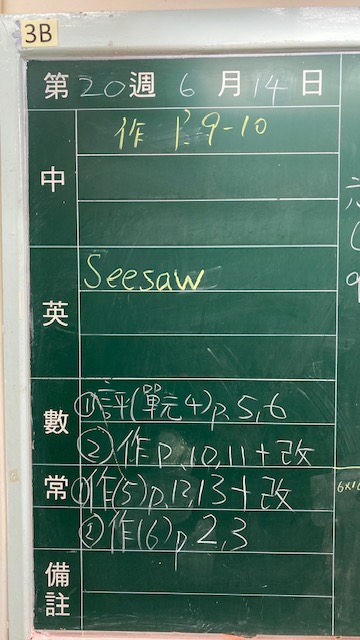 3B
第20週 6月14日
中 作 P.9-10
英 Seesaw
數 ①評(單元4)p.5,6
②作p.10,11+改
常 ①作(5)p.12,13+改
②作(6)p2,3
備註